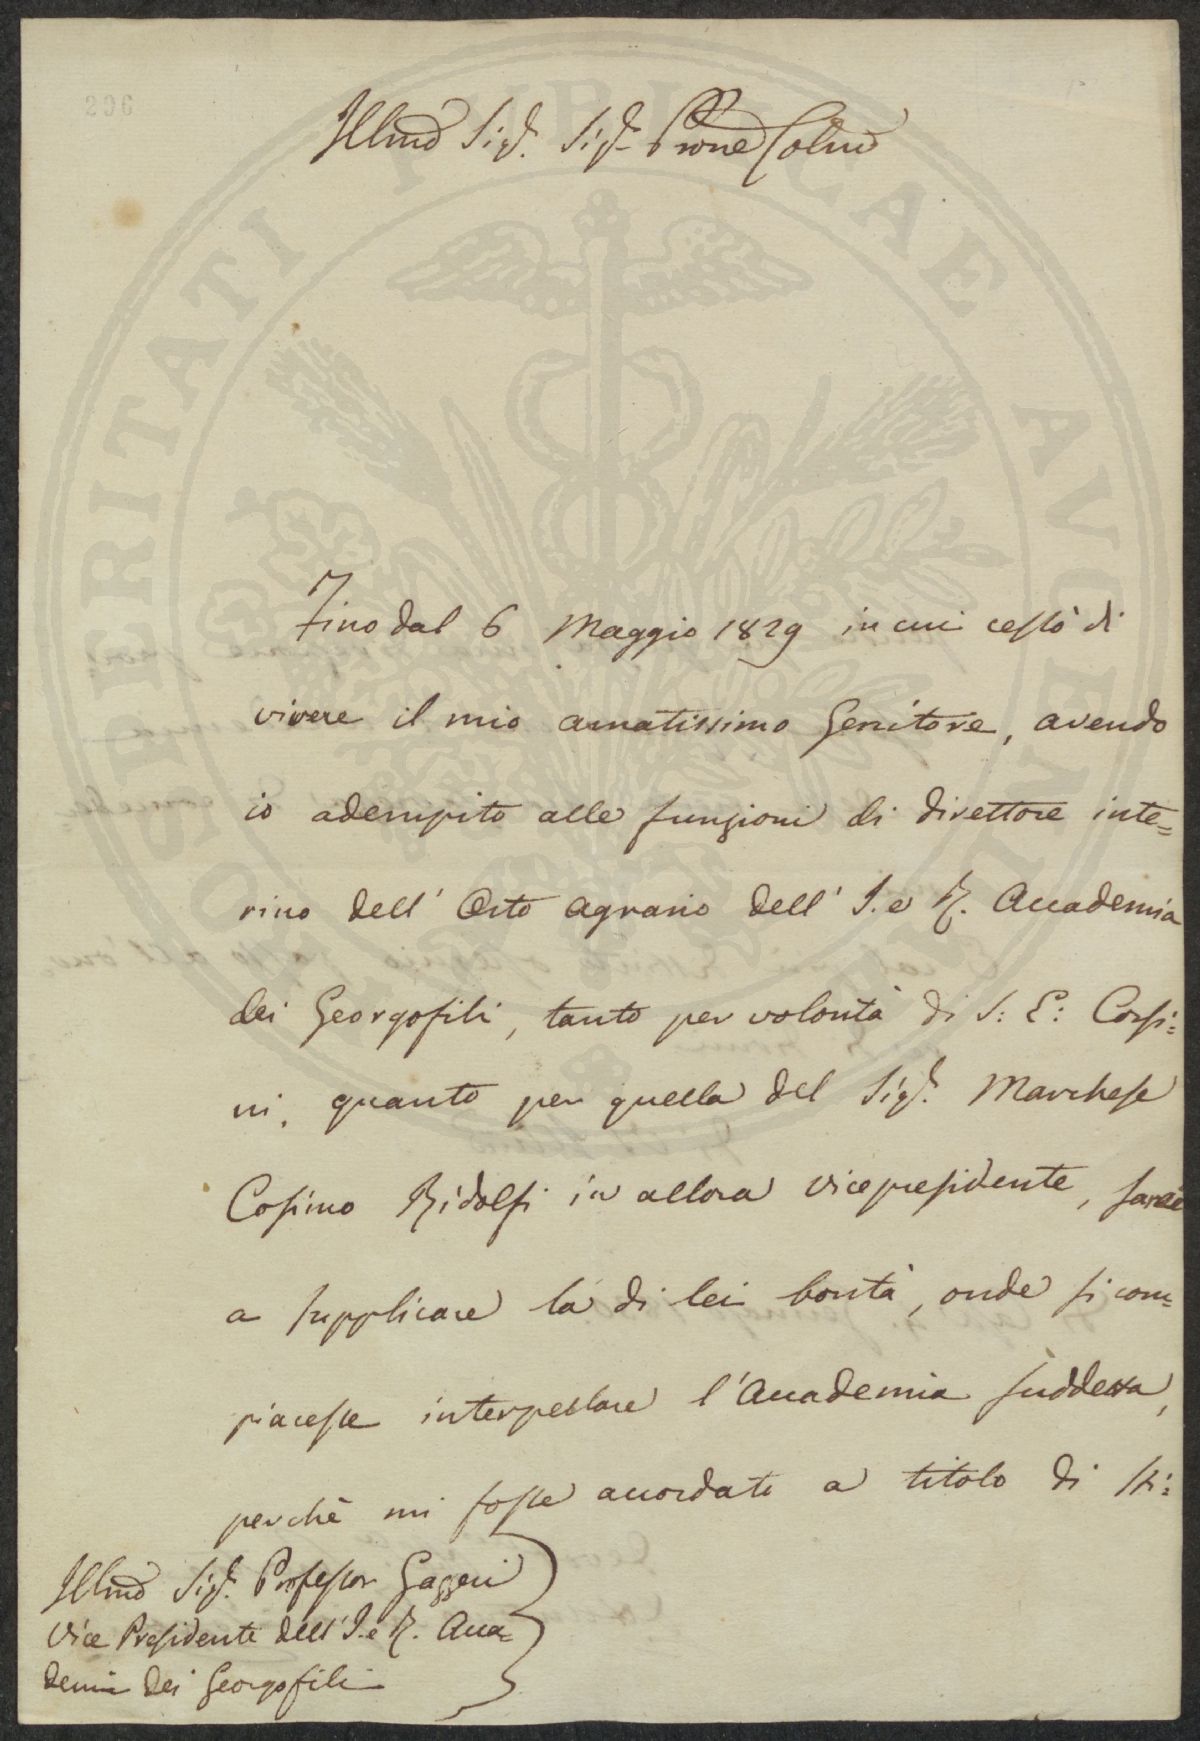 206
Illmo Sigr. Sigr. Prone Colmo
Fino dal 6 Maggio 1829 in cui cessò di
vivere il mio amatissimo Genitore, avendo
io adempito alle funzioni di direttore inte=
rino dell' Orto agrario dell' I. e R. Accademia
dei Georgofili, tanto per volontà di S: E: Corsi=
ni, quanto per quella del Sigr. Marchese
Cosimo Ridolfi in allora vicepresidente, sarei
a supplicare la di lei bontà, onde si com=
piacesse interpellare l'Accademia suddetta,
perchè mi fosse accordato a titolo di sti=
Illmo Sigr. Professor Gazzeri
Vice Presidente dell' I. e R. Acca=
demia dei Georgofili
PROSPERITATI PUBLICAE AVGENDAE